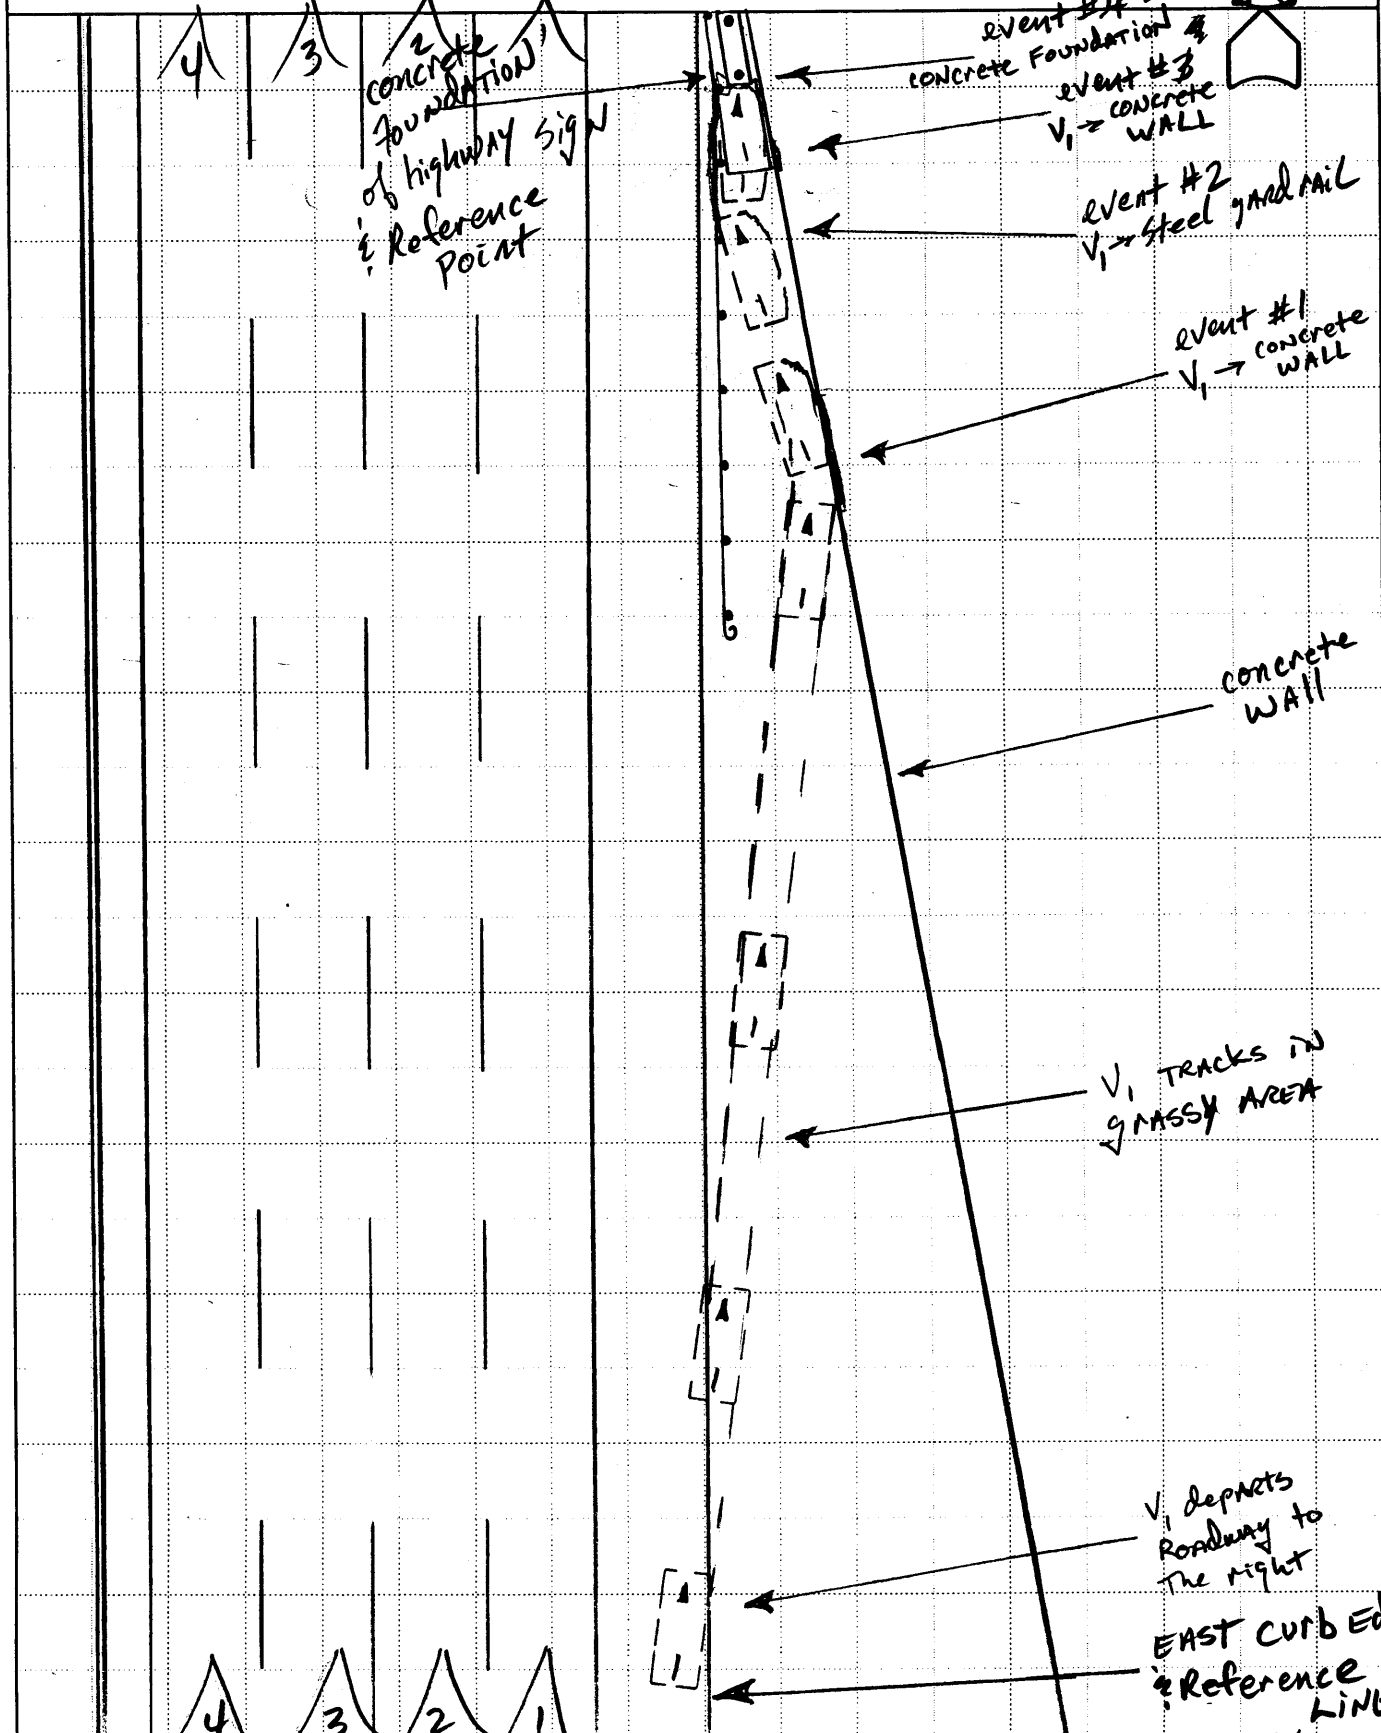 4 3 2 1
concrete
Foundation
of highway sign
& Reference
Point
event #4
concrete Foundation &
event #3
V1 → concrete
WALL
event #2
V1 → Steel gardrail
event #1
V1 → concrete
WALL
concrete
WAll
V1 TRACKS iN
grassy AREA
V1 departs
Roadway to
The right
EAST curb Ed
& Reference
LiNE
4 3 2 1
1
1
1
1
1
1
1
1